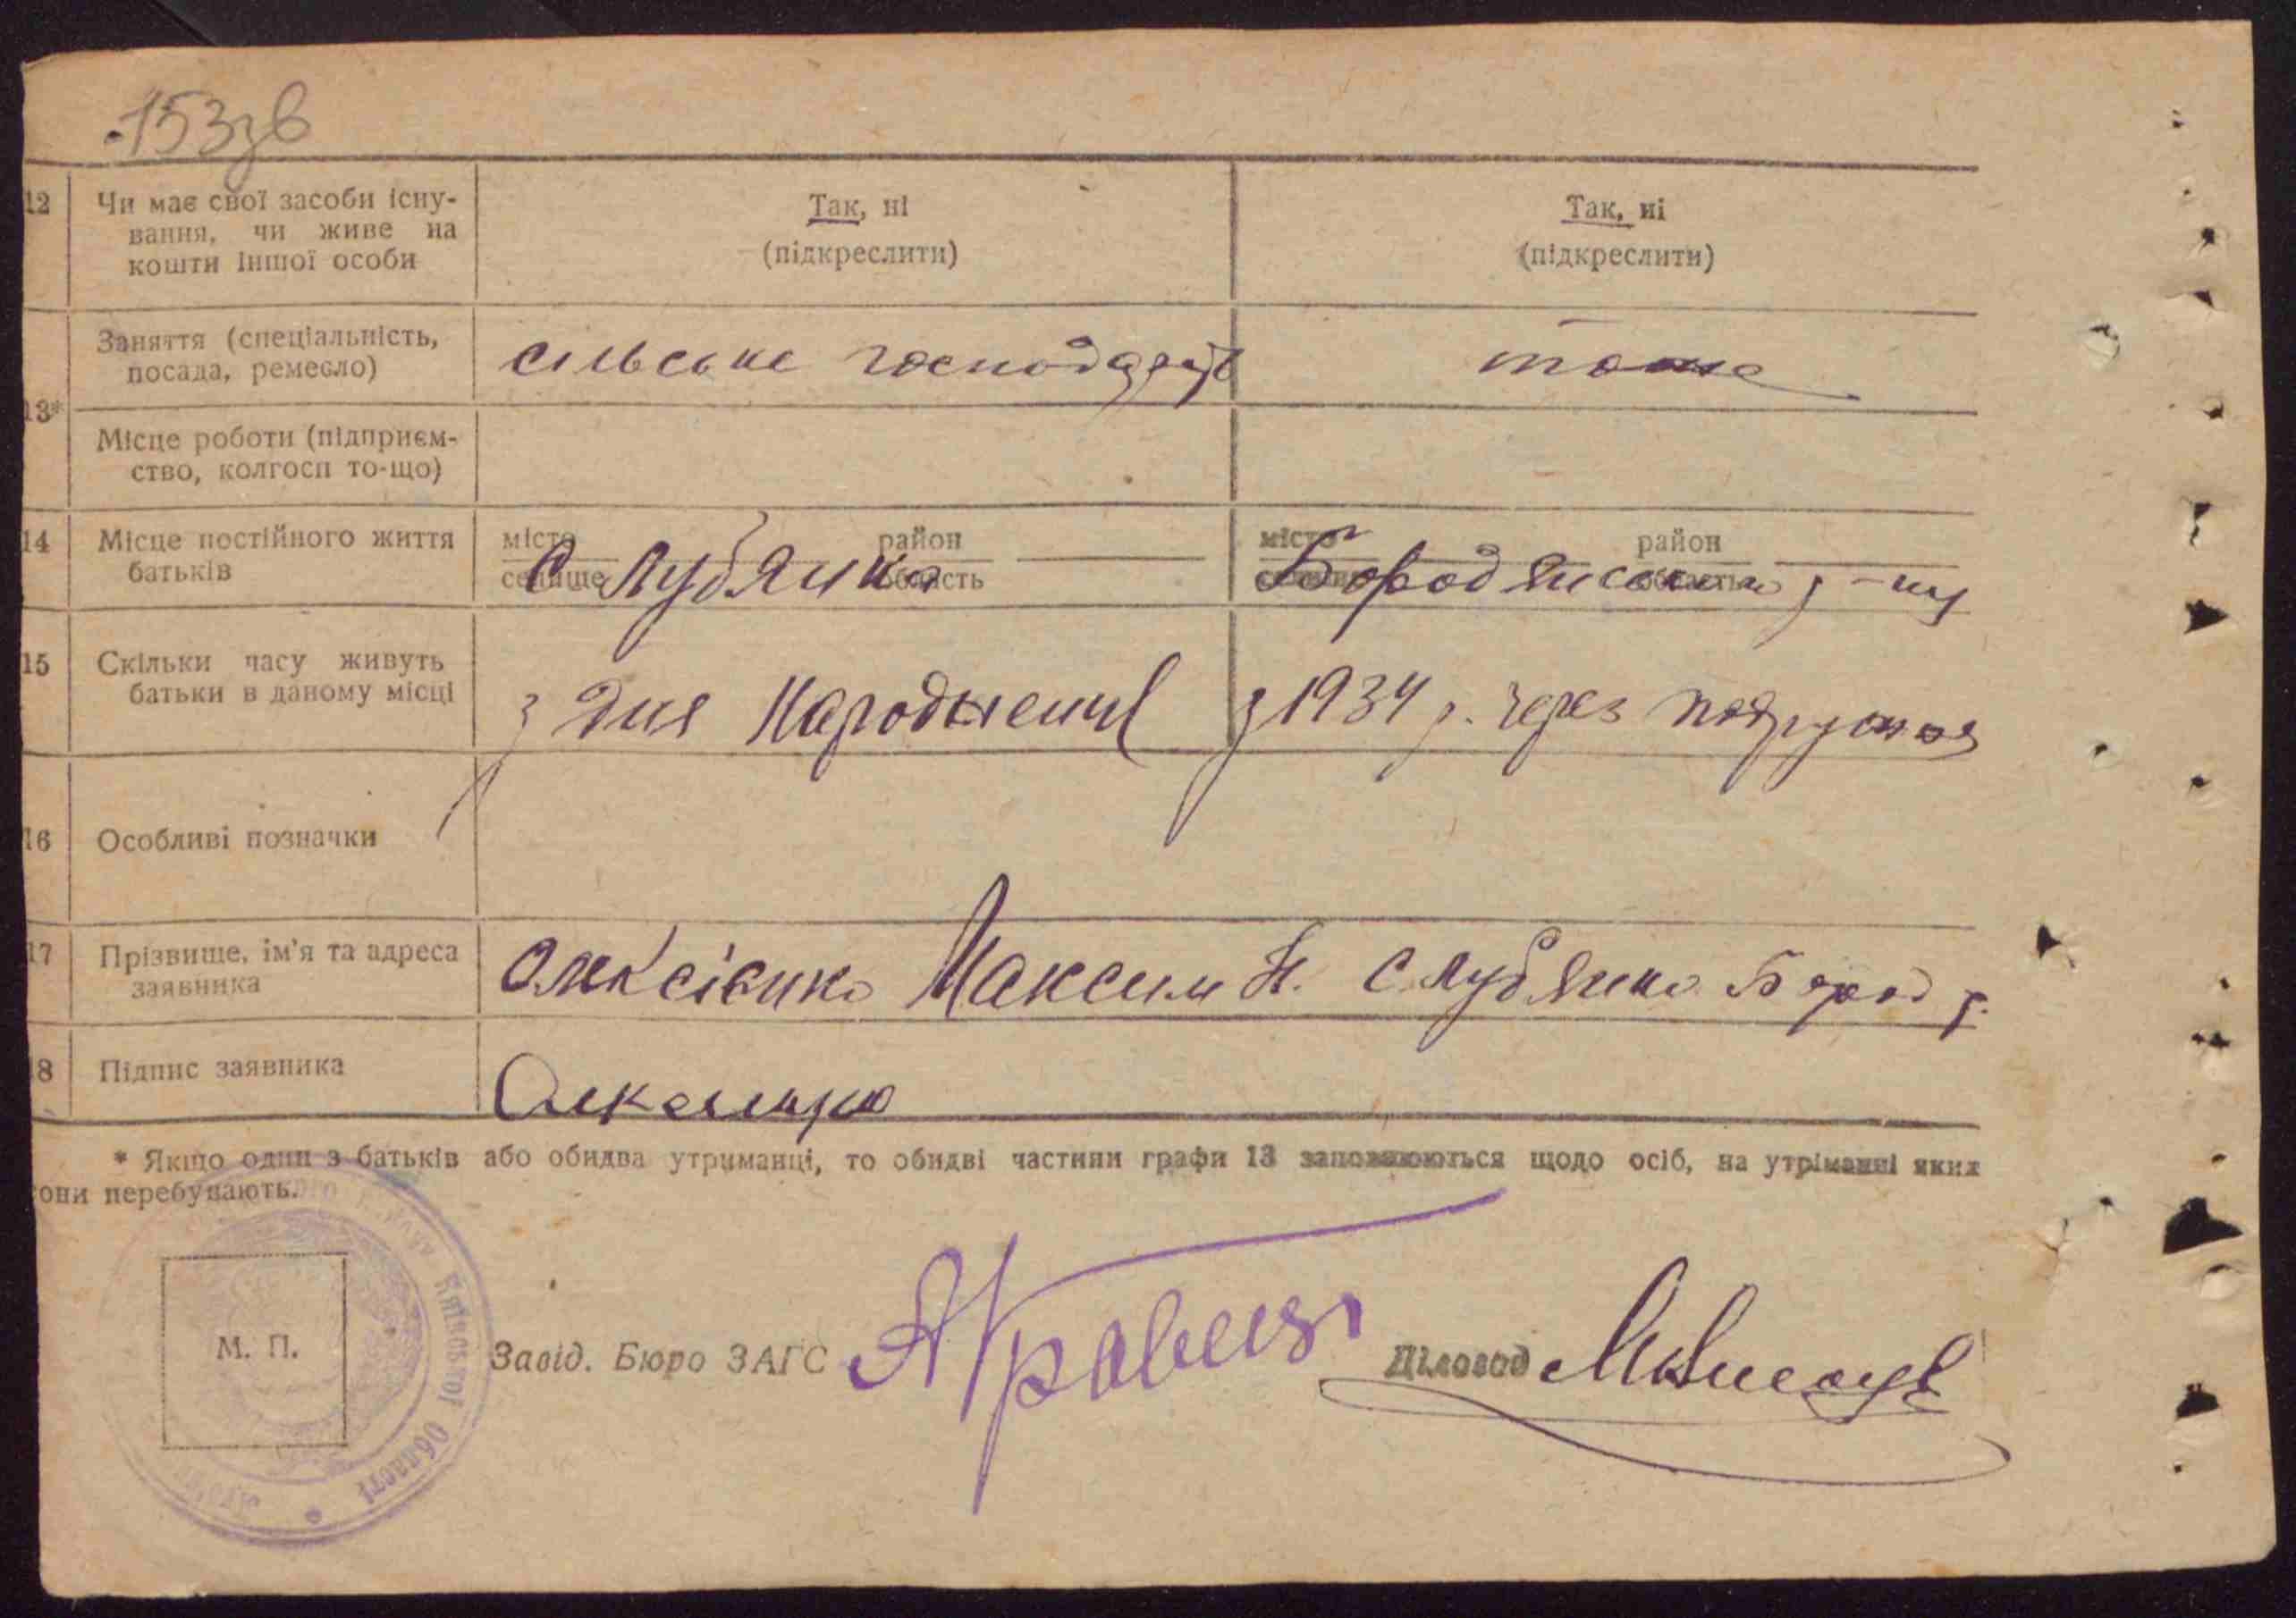 153зв
12 Чи має свої засоби існу-
вання, чи живе на
кошти іншої особи
Так, ні
(підкреслити)
Так, ні
(підкреслити)
13*
Заняття (спеціальність,
посада, ремесло)
сільське господарст
тоже
Місце роботи (підприєм-
ство, колгосп то-що)
14 Місце постійного життя
батьків
місто район
селище область
с Луб'янка
місто район
селище область
Бородянського р-ну
15 Скільки часу живуть
батьки в даному місці
з дня Народження
з 1934 р. через
16 Особливі позначки
17 Прізвище, ім'я та адреса
заявника
Олексієнко Максим Н. С Луб'янка Бород р.
18 Підпис заявника
* Якщо один з батьків або обидва утриманці, то обидві частини графи 13 заповнюються щодо осіб, на утріманні яких
они перебувають.
М. П.
Київської Області
Завід. Бюро ЗАГС
Кравець
Діловод